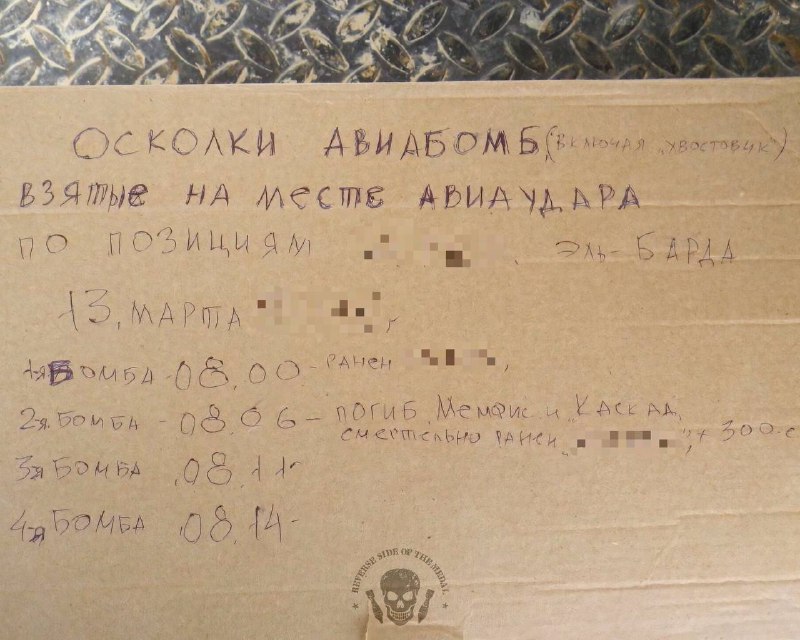 ОСКОЛКИ АВИАБОМБ (ВКЛЮЧАЯ „ХВОСТОВИК")
ВЗЯТЫЕ НА МЕСТЕ АВИАУДАРА
ПО ПОЗИЦИЯМ ЭЛЬ-БАРДА
13, МАРТА г
1-я БОМБА - 08.00 - РАНЕН ,
2я БОМБА - 08.06 - ПОГИБ „Мемфис и „КАСКАД„
СМЕРТЕЛЬНО РАНЕН „ ", + 300-е
3я БОМБА 08.11-
4-я БОМБА 08.14-
REVERSE SIDE OF THE MEDAL